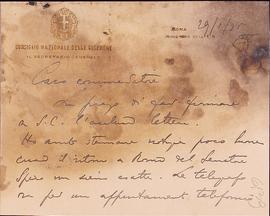 ROMA
CONSIGLIO NAZIONALE DELLE RICERCHE
IL SEGRETARIO GENERALE
Caro commendatore
La prego di far firmare
a S.E. l'acclusa lettera.
Ho avuto stamane notizie poco buone
circa il ritorno a Roma del Senatore
Spero non siano esatte. Le telefono
per un appuntamento telefonico